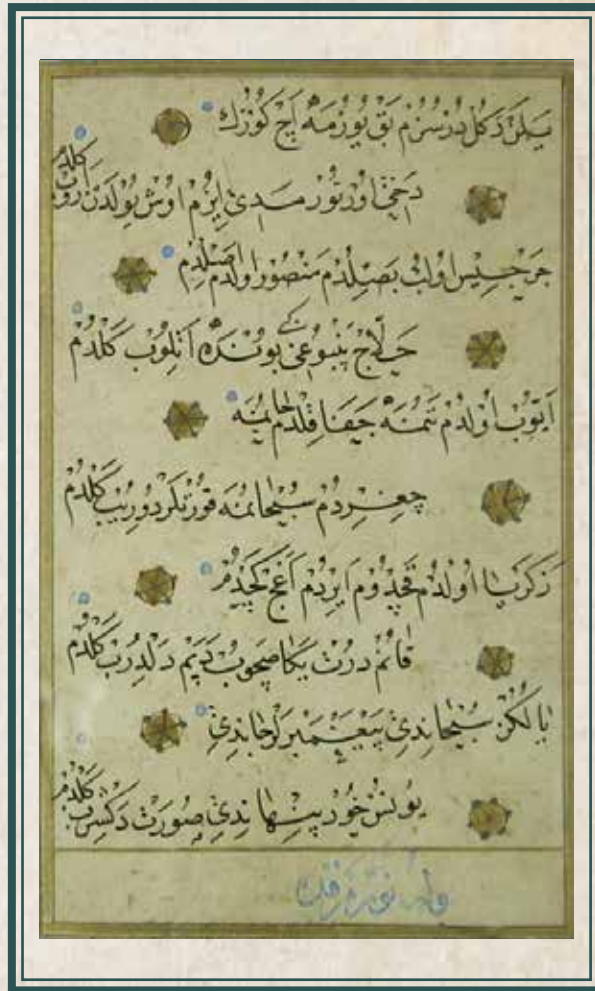 يلن دكل درسزم بق يوزمه اچ كوزك
دخى اورتور مدى ايزم اوش يولدن اروب كلدم
جرجيس اولب بصلدم منصور اولدم اصلدم
حلاج پنبوغى كبى بونده اتلوب كلدم
ايوب اولدم تنمه جفا قلدم جانمه
چغردم سبحانمه قورتلر دوريب كلدم
زكريا اولدم قچدوم ايردم اغج كچدم
قانم درت يكا صچوب دپم دلدرب كلدم
يالكز سبحاندى پيغمبرلر جاندى
يونس خود پنهاندى صورت دكشرب كلدم